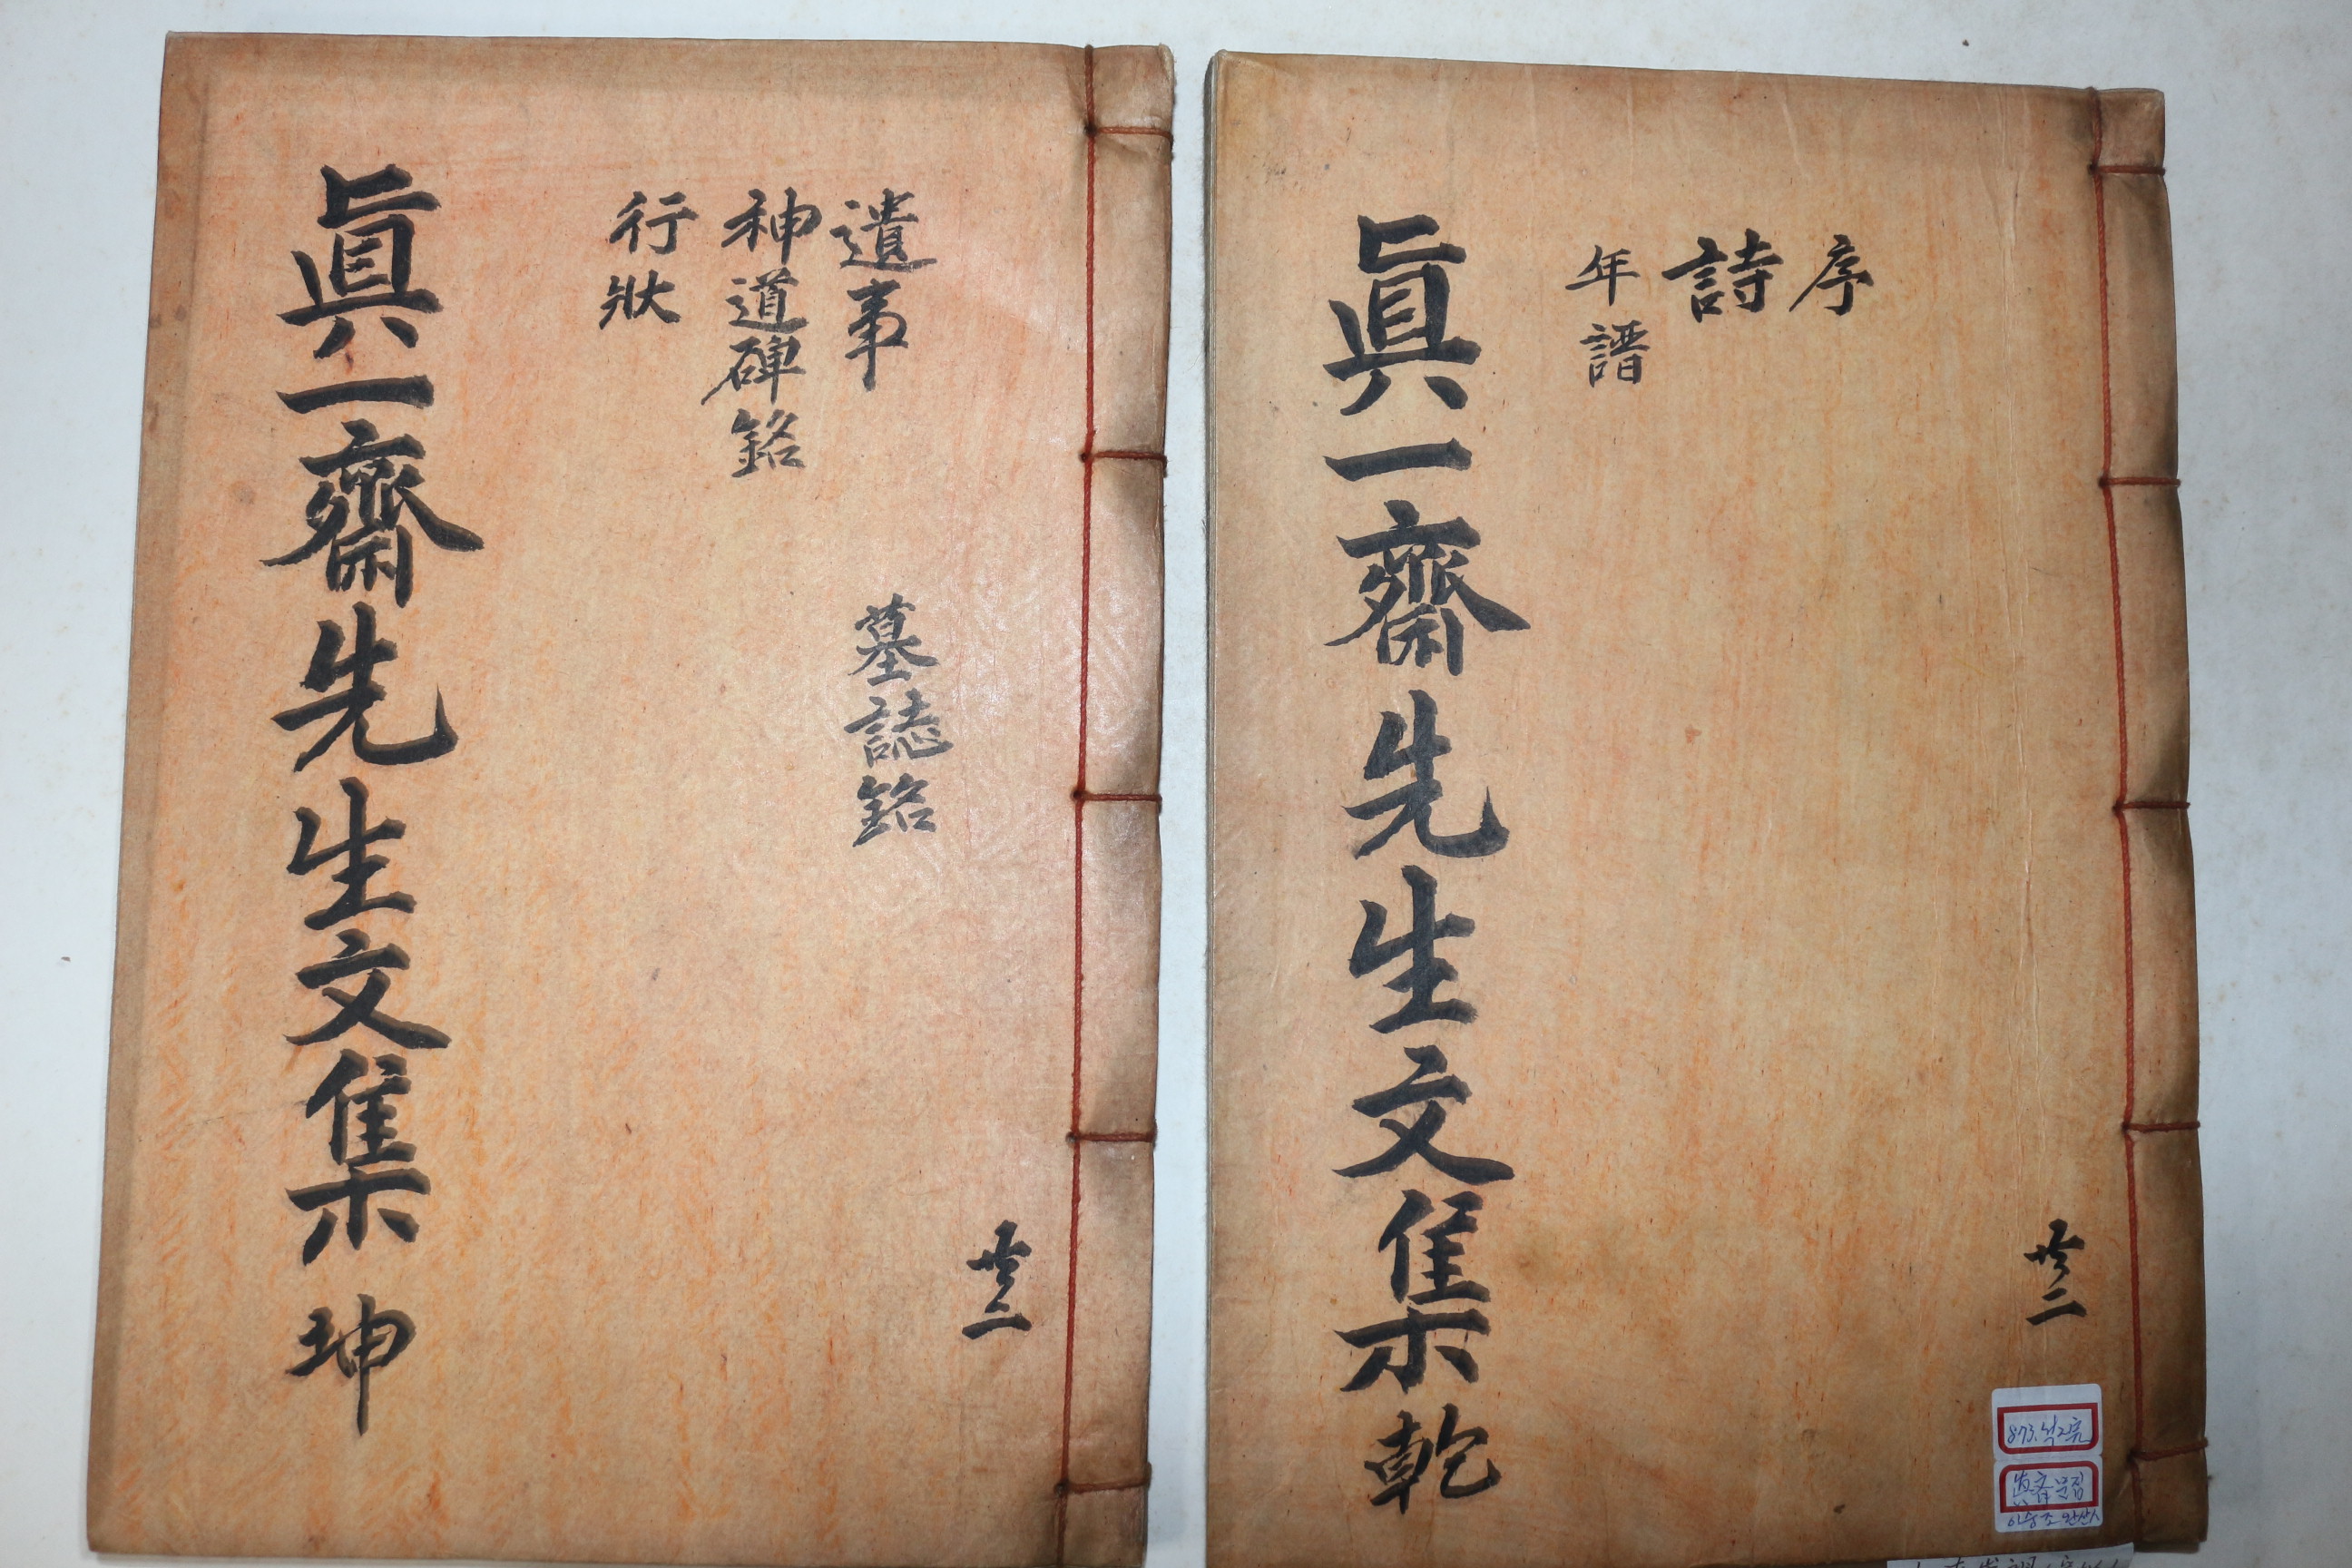 序
詩
年譜
眞一齋先生文集 乾
共二
遺事
墓誌銘
神道碑銘
行狀
眞一齋先生文集 坤
共二